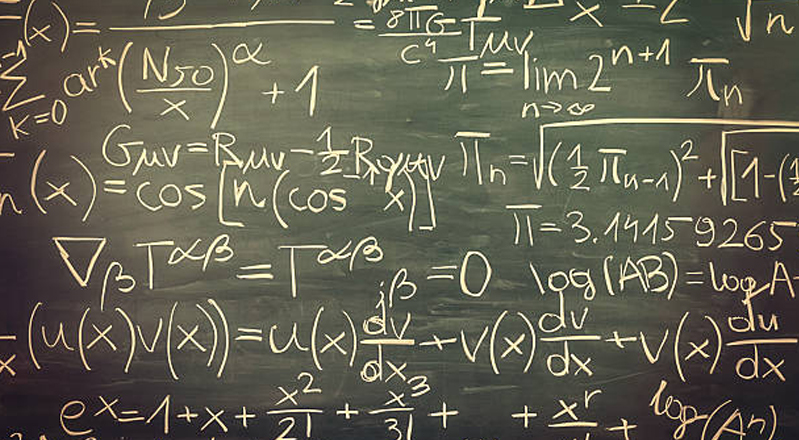 (x)= = 8πG/c⁴ Tμν x √n
∑ k=0 ar^k (N50/x)^α + 1 π = lim n→∞ 2^(n+1) π_n
Gμν = Rμν − 1/2 R gμν π_n = √((1/2 π_(n-1))² + [1-(
n(x) = cos[n(cos x)]
π=3.14159265
∇_β T^αβ = T^αβ ;β = 0 log(AB)=log A
(u(x)v(x))=u(x) dv/dx + v(x) dv/dx + v(x) du/dx
e^x = 1 + x + x²/2! + x³/3! + + x^r +
log(A^n)